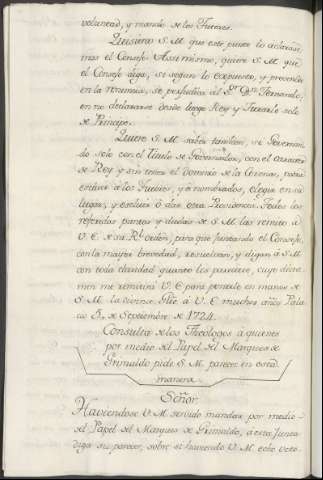 voluntad, y mando de los Jueces.
Quisiera S. M. que este punto lo aclarase
mas el Consejo. Assimismo, quiere S. M. que
el Consejo diga, si segun lo expuesto, y prevenido
en la renuncia, se perjudica al Sr. Dn. Fernando,
en no declararse desde luego Rey y Jurarle solo
de Principe.
Quiere S. M. saber tambien, si Governan
do solo con el titulo de Governador, con el caracter
de Rey y sin tener el Dominio de la Corona, podrá
quitar a los Jueces, y nombrados, elegir en su
lugar, y excluir ó dar otra Providencia. Todos los
referidos puntos y dudas de S. M. las remito á
V. E. de su Rl. orden, para que juntando el Consejo,
con la mayor brevedad, resuelvan, y digan á S. M.
con toda claridad quanto les pareciere, cuyo dicta-
men me remitirá V. E. para ponerle en manos de
S. M. Dios gue. á V. E. muchos años Pala
cio de Septiembre de 1724.
Consulta de los Theologos a quienes
por medio del Papel del Marques de
Grimaldo pide S. M. parecer en esta
manera
Señor.
Haviendose V. M. servido mandar por medio
del Papel del Marques de Grimaldo, á esta Junta
diga su parecer, sobre si haviendo V. M. echo voto